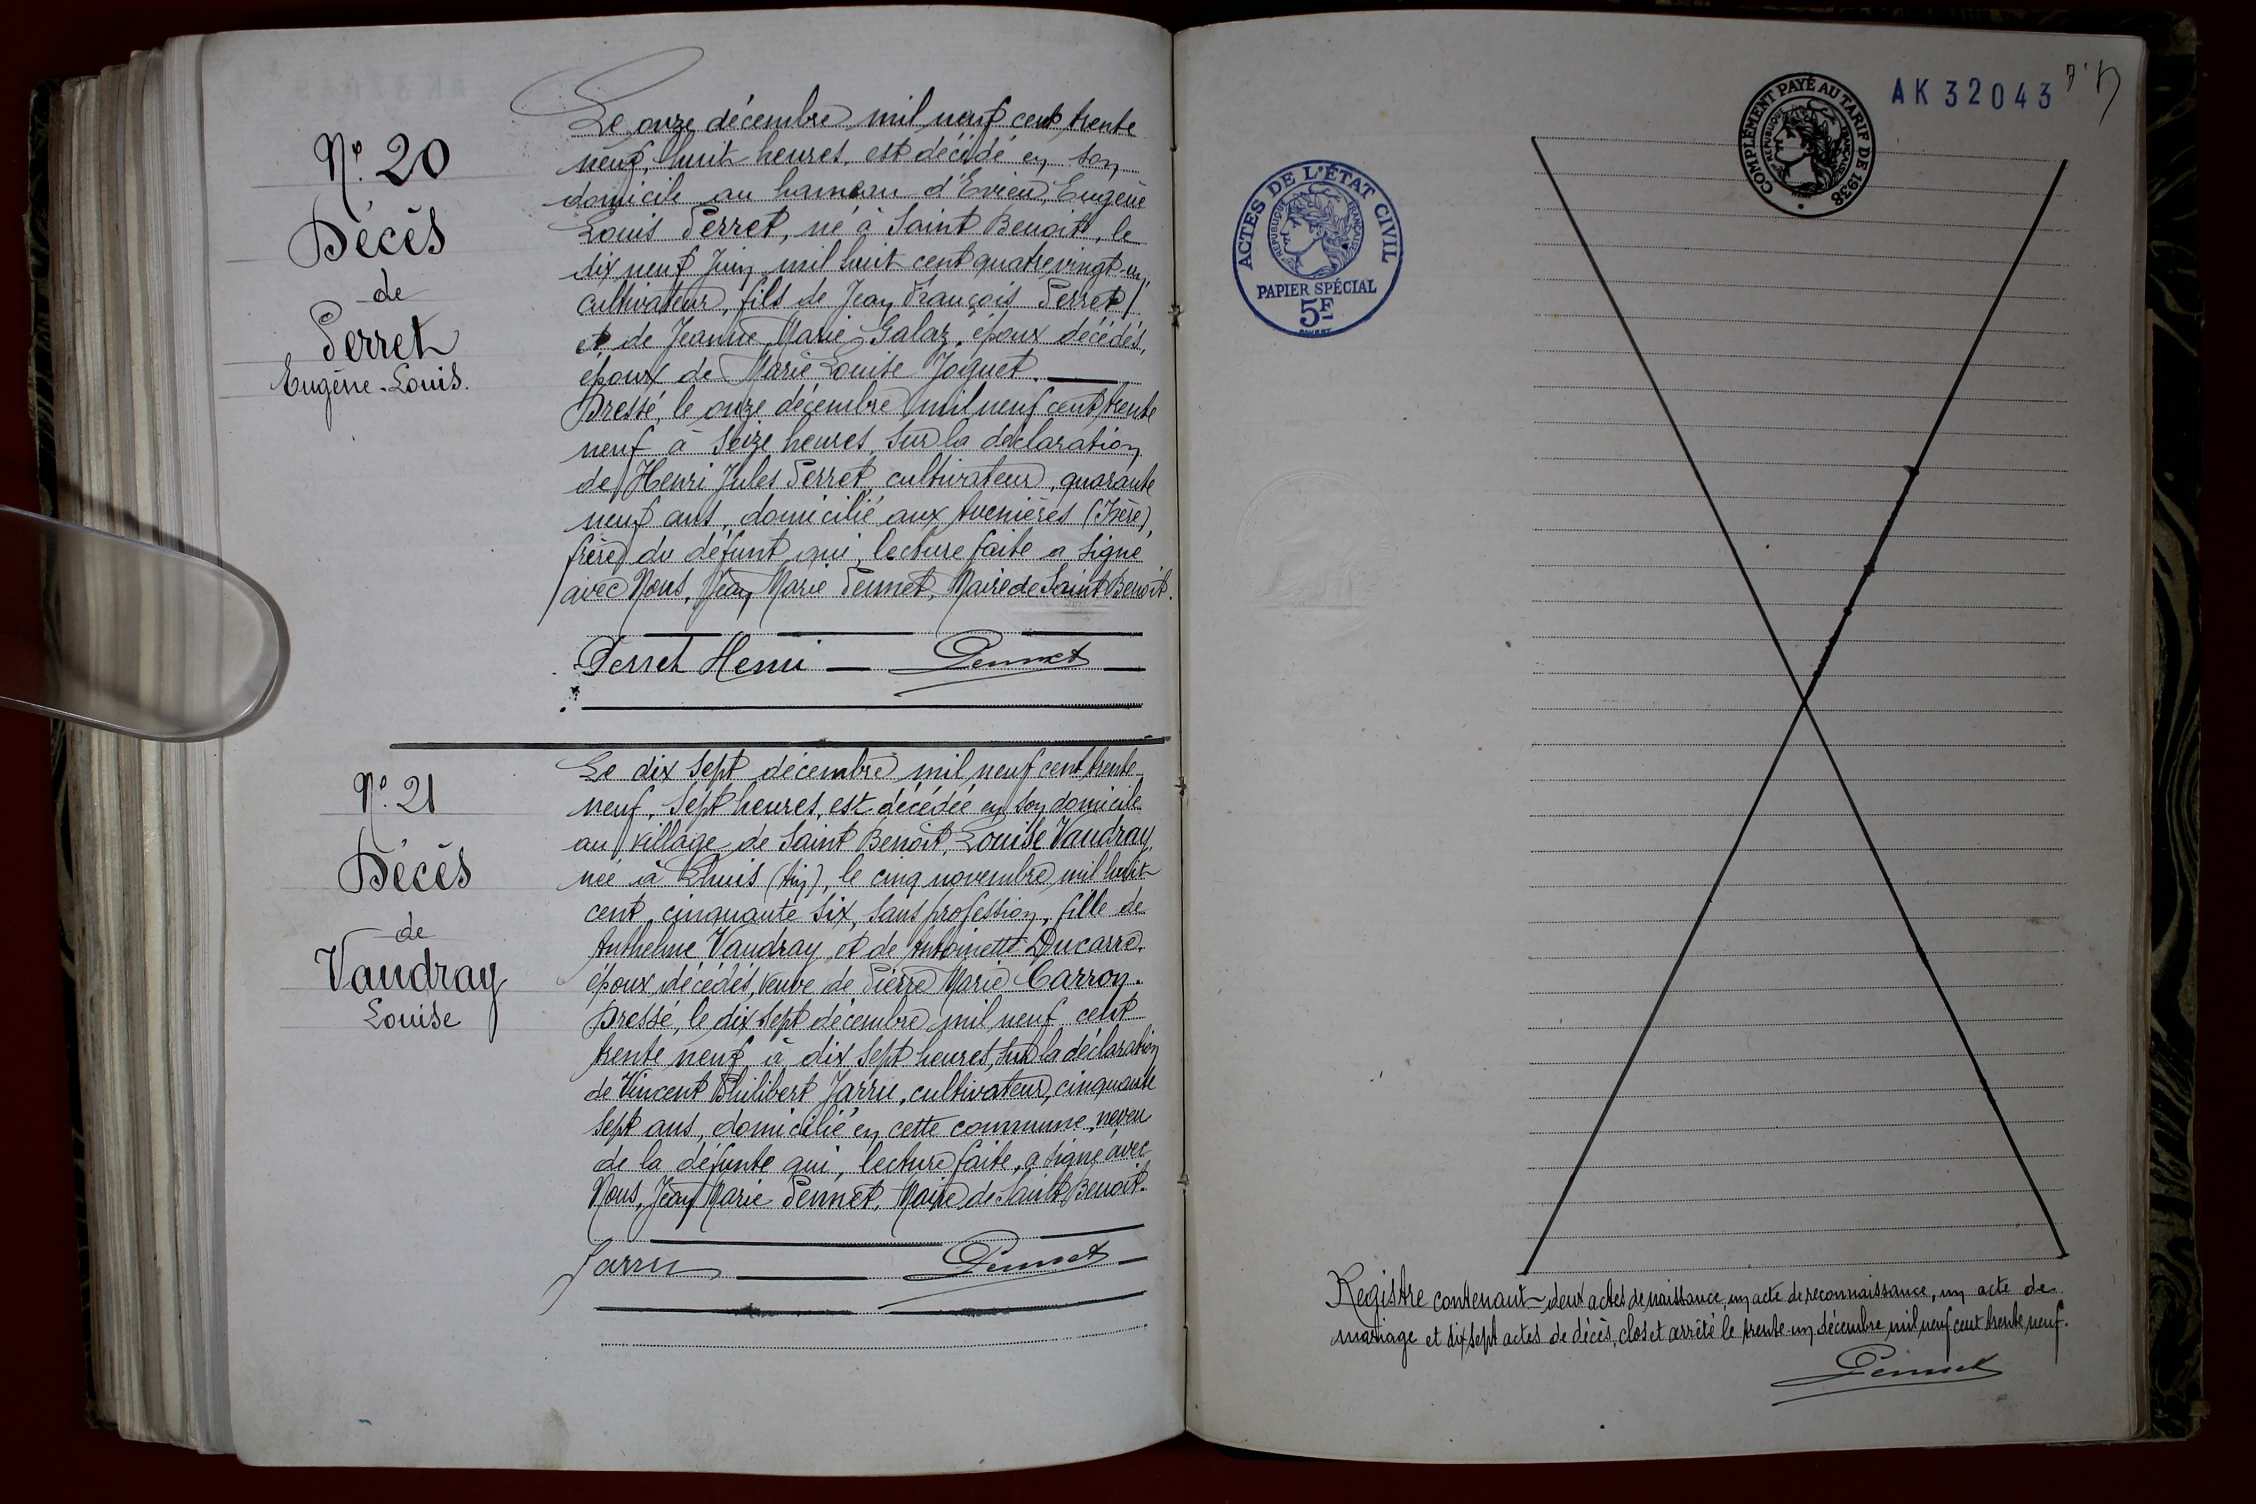 N° 20
Décès
de
Perret
Eugène-Louis.
Le onze décembre mil neuf cent trente
neuf, huit heures, est décédé en son
domicile au hameau d'Evieu, Eugène
Louis Perret, né à Saint Benoit, le
dix neuf Juin mil huit cent quatre vingt un
cultivateur, fils de Jean François Perret
et de Jeanne Marie Galaz, époux décédés,
époux de Marie Louise Joguet.
Dressé, le onze décembre mil neuf cent trente
neuf à seize heures, sur la déclaration
de Henri Jules Perret, cultivateur, quarante
neuf ans, domicilié aux Avenières (Isère),
frère du défunt qui, lecture faite a signé
avec Nous, Jean Marie Pennet, Maire de Saint Benoit.
Perret Henri Pennet
N° 21
Décès
de
Vaudray
Louise
Le dix sept décembre mil neuf cent trente
neuf, sept heures, est décédée en son domicile
au village de Saint Benoit, Louise Vaudray,
née à Lhuis (Ain), le cinq novembre mil huit
cent cinquante six, sans profession, fille de
Anthelme Vaudray et de Antoinette Ducarre,
époux décédés, veuve de Pierre Marie Carron.
Dressé, le dix sept décembre mil neuf cent
trente neuf à dix sept heures, sur la déclaration
de Vincent Philibert Jarru, cultivateur, cinquante
sept ans, domicilié en cette commune, neveu
de la défunte qui, lecture faite, a signé avec
Nous, Jean Marie Pennet, Maire de Saint Benoit.
Jarru Pennet
AK 32043
COMPLÉMENT PAYÉ AU TARIF DE 1938
RÉPUBLIQUE FRANÇAISE
ACTES DE L'ÉTAT CIVIL
RÉPUBLIQUE FRANÇAISE
PAPIER SPÉCIAL
5F
Registre contenant deux actes de naissance, un acte de reconnaissance, un acte de
mariage et dix sept actes de décès, clos et arrêté le trente-un décembre mil neuf cent trente neuf.
Pennet